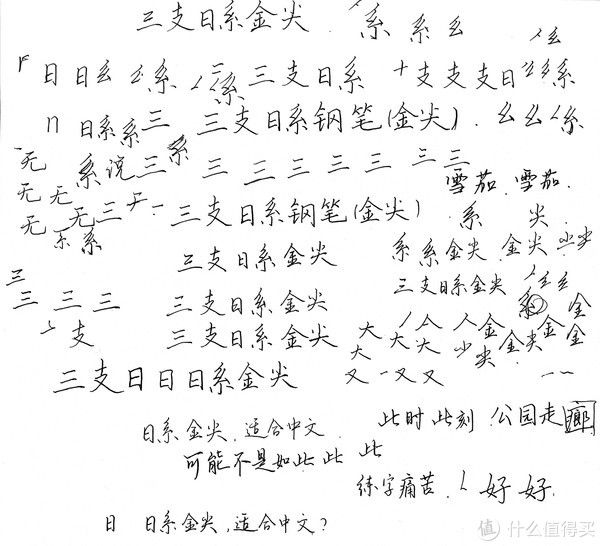 三支日系金尖 系 系 幺
日 日 幺 幺 系 系 三 三支日系 十 支 支 支 日 幺 系
日系系 三 三支日系钢笔(金尖). 幺 幺 系
无 系 浣 三 系 三 三 三 三 三 三 三
无 无 雪茄. 雪茄.
无 无 三 无 一 三支日系钢笔(金尖) 系 尖.
系 三支日系金尖 系 系 金尖 金尖 尖
三 三支日系金尖 幺 幺
三 三 三 三支日系金尖 系 金
支 三支日系金尖 大 大 人 人 大 人 金 尖 金尖 金 金
三支日日日系金尖 又 一 又 又 一 一
日系金尖,适合中文. 此时此刻 公园走廊
可能不是如此 此 此
练字痛苦. 好 好.
日 日系金尖,适合中文?
值 什么值得买